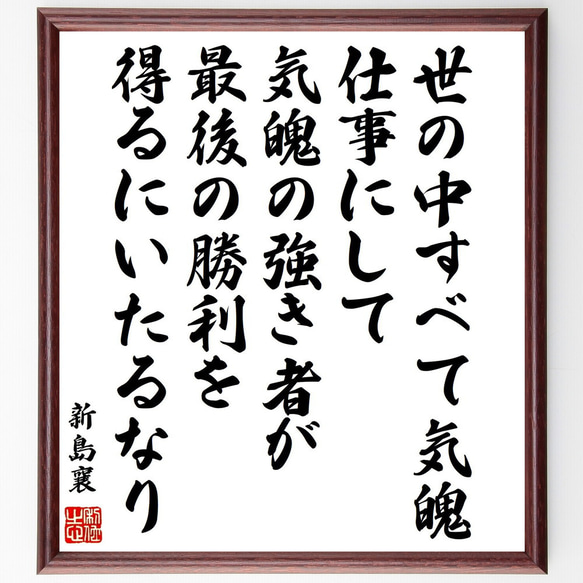 世の中すべて気魄
仕事にして
気魄の強き者が
最後の勝利を
得るにいたるなり
新島襄